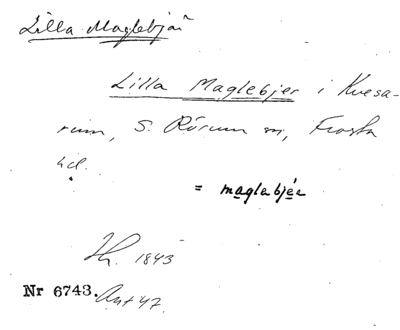 Lilla Maglebjär
Lilla Maglebjer i Kvesa-
rum, S. Rörum sn, Frosta
hd.
= maglabjér
1843
Nr 6743. Ant 47.